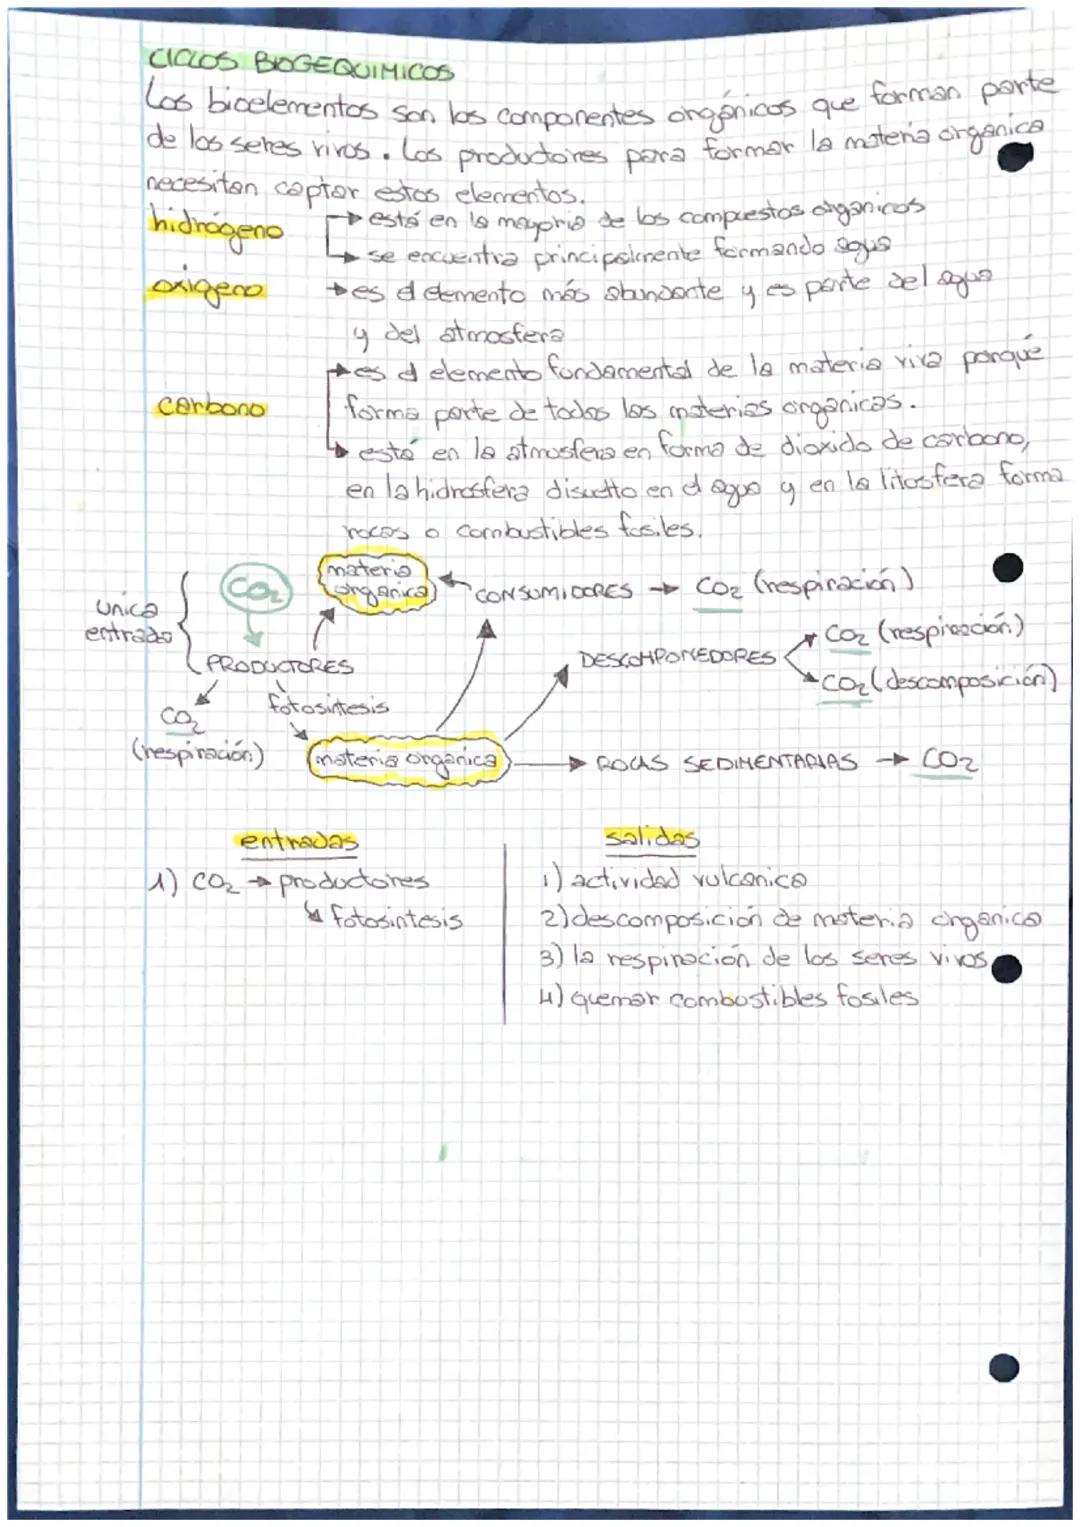 CICLOS BIOGEQUIMICOS
Los bioelementos son los componentes orgánicos que forman parte
de los seres vivos. Los productores para formar la materia organica
necesitan captar estos elementos.
hidrógeno → está en la mayoria de los compuestos organicos
→ se encuentra principalmente formando agua
oxigeno → es el elemento más abundante y es parte del agua
y del atmosfera
→ es el elemento fundamental de la materia viva porqué
carbono forma parte de todos los materias orgánicas.
→ está en la atmosfera en forma de dioxido de carbono,
en la hidrosfera disuelto en el agua y en la litosfera forma
rocas o combustibles fosiles.
unica
entrada
CO2
materia
organica
CONSUMIDORES → CO2 (respiración)
PRODUCTORES
DESCOMPONEDORES
CO2 (respiración)
CO2 (descomposición)
fotosintesis
CO2
(respiración)
materia orgánica → ROCAS SEDIMENTARIAS → CO2
entradas
1) CO2 → productores
↳ fotosintesis
salidas
1) actividad vulcanica
2) descomposición de materia organica
3) la respiración de los seres vivos
4) quemar combustibles fosiles